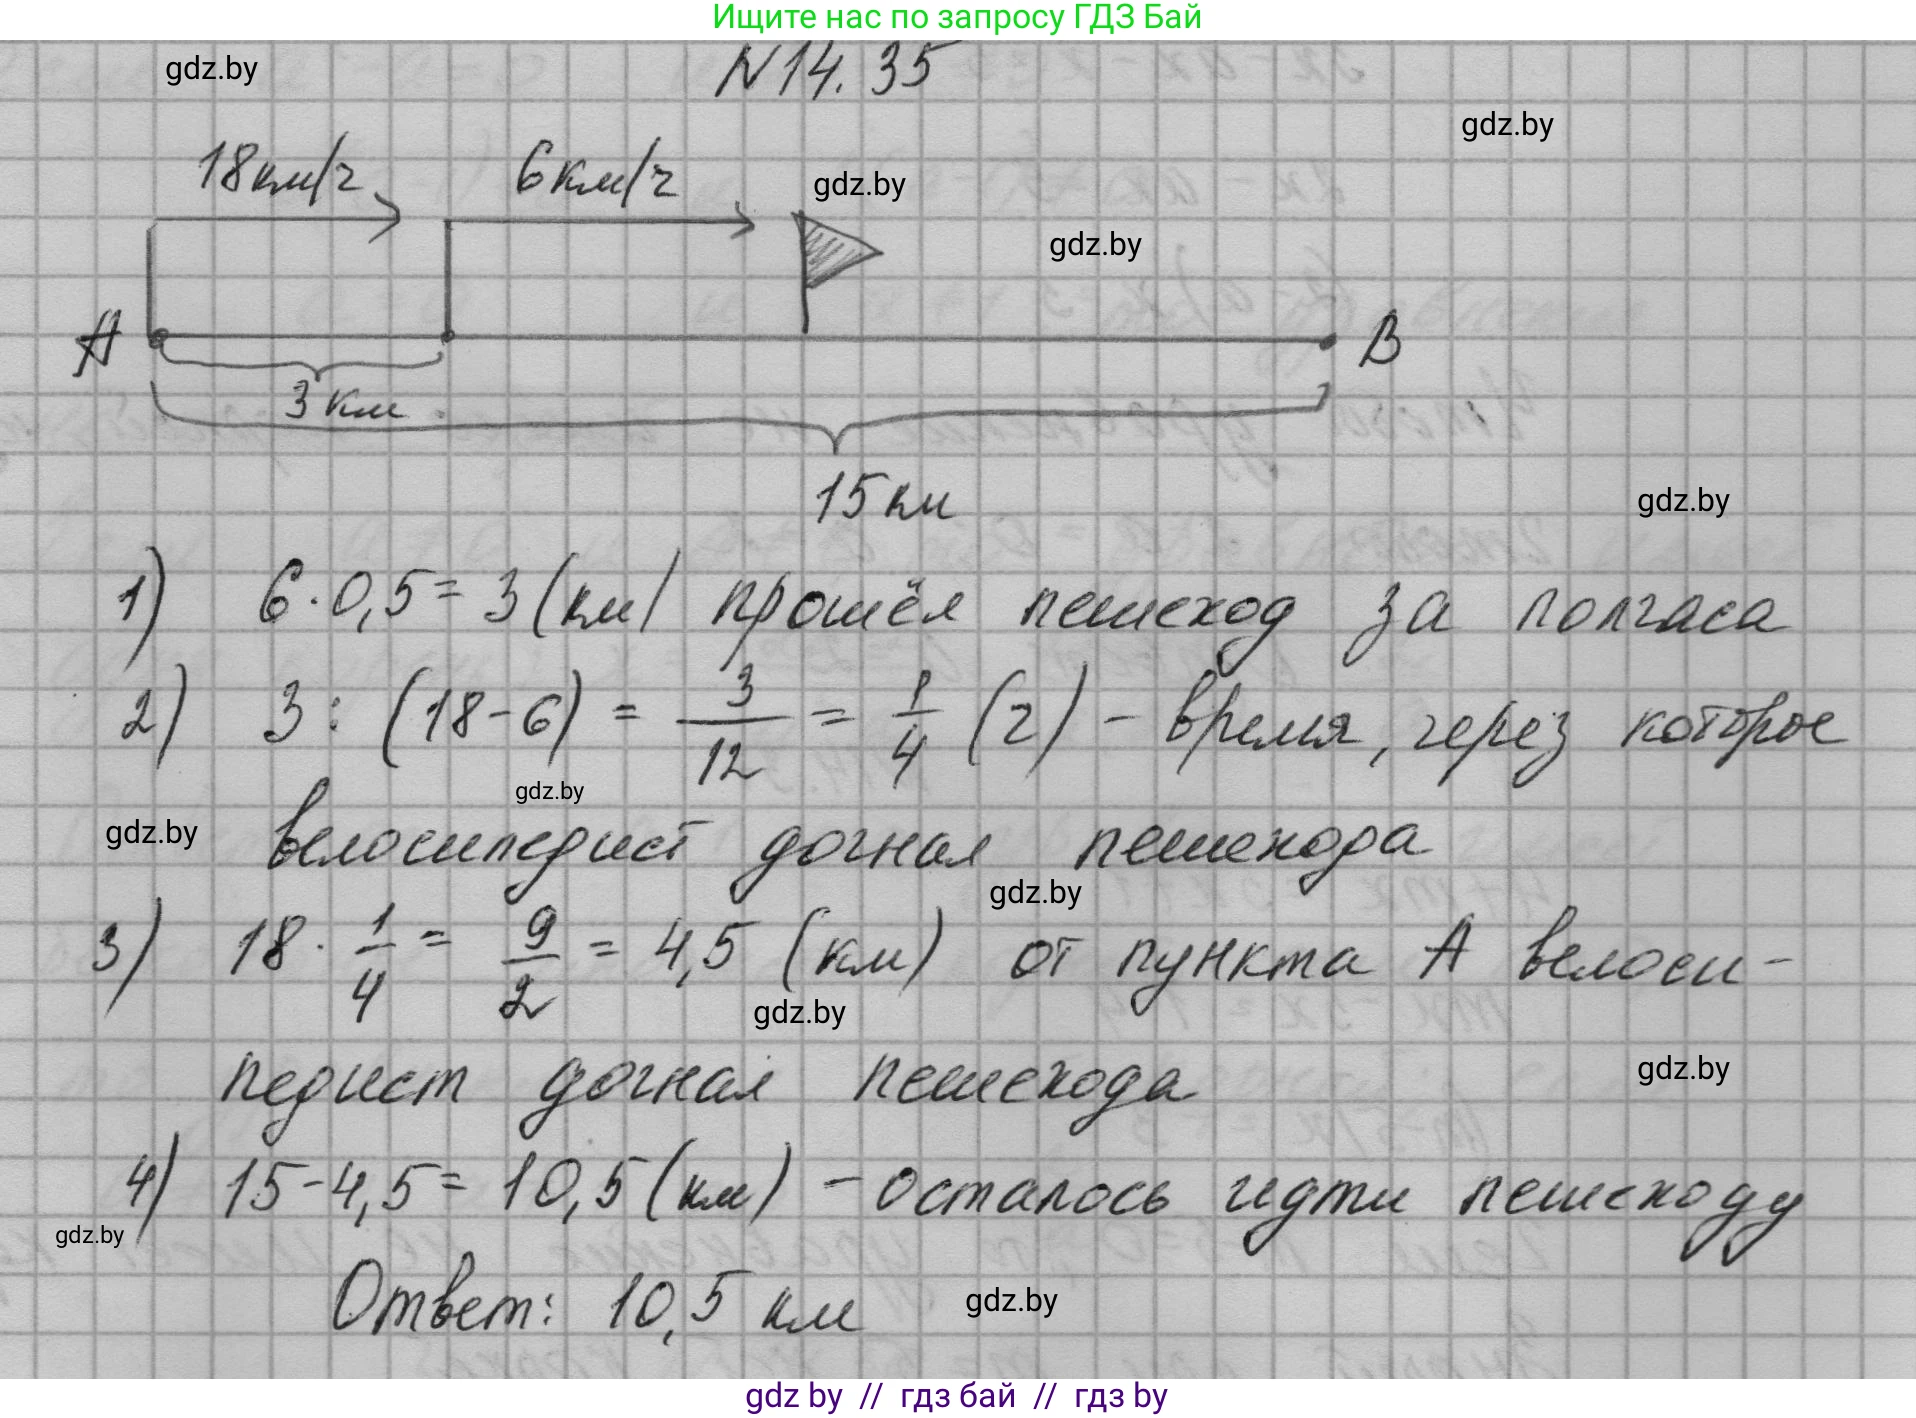 Ищите нас по запросу ГДЗ Бай
gdz.by
N14.35
gdz.by
18км/ч
6км/ч
gdz.by
gdz.by
A
B
3 км
15 км
gdz.by
1) 6·0,5=3(км) прошёл пешеход за полчаса
2) 3:(18-6)=3/12=1/4(ч)-время, через которое
gdz.by
gdz.by
велосипедист догнал пешехода
gdz.by
3) 18·1/4=9/2=4,5 (км) от пункта А велоси-
gdz.by
педист догнал пешехода
gdz.by
4) 15-4,5=10,5(км)-осталось идти пешеходу
gdz.by
Ответ: 10,5 км
gdz.by
gdz by // гдз бай // гдз by